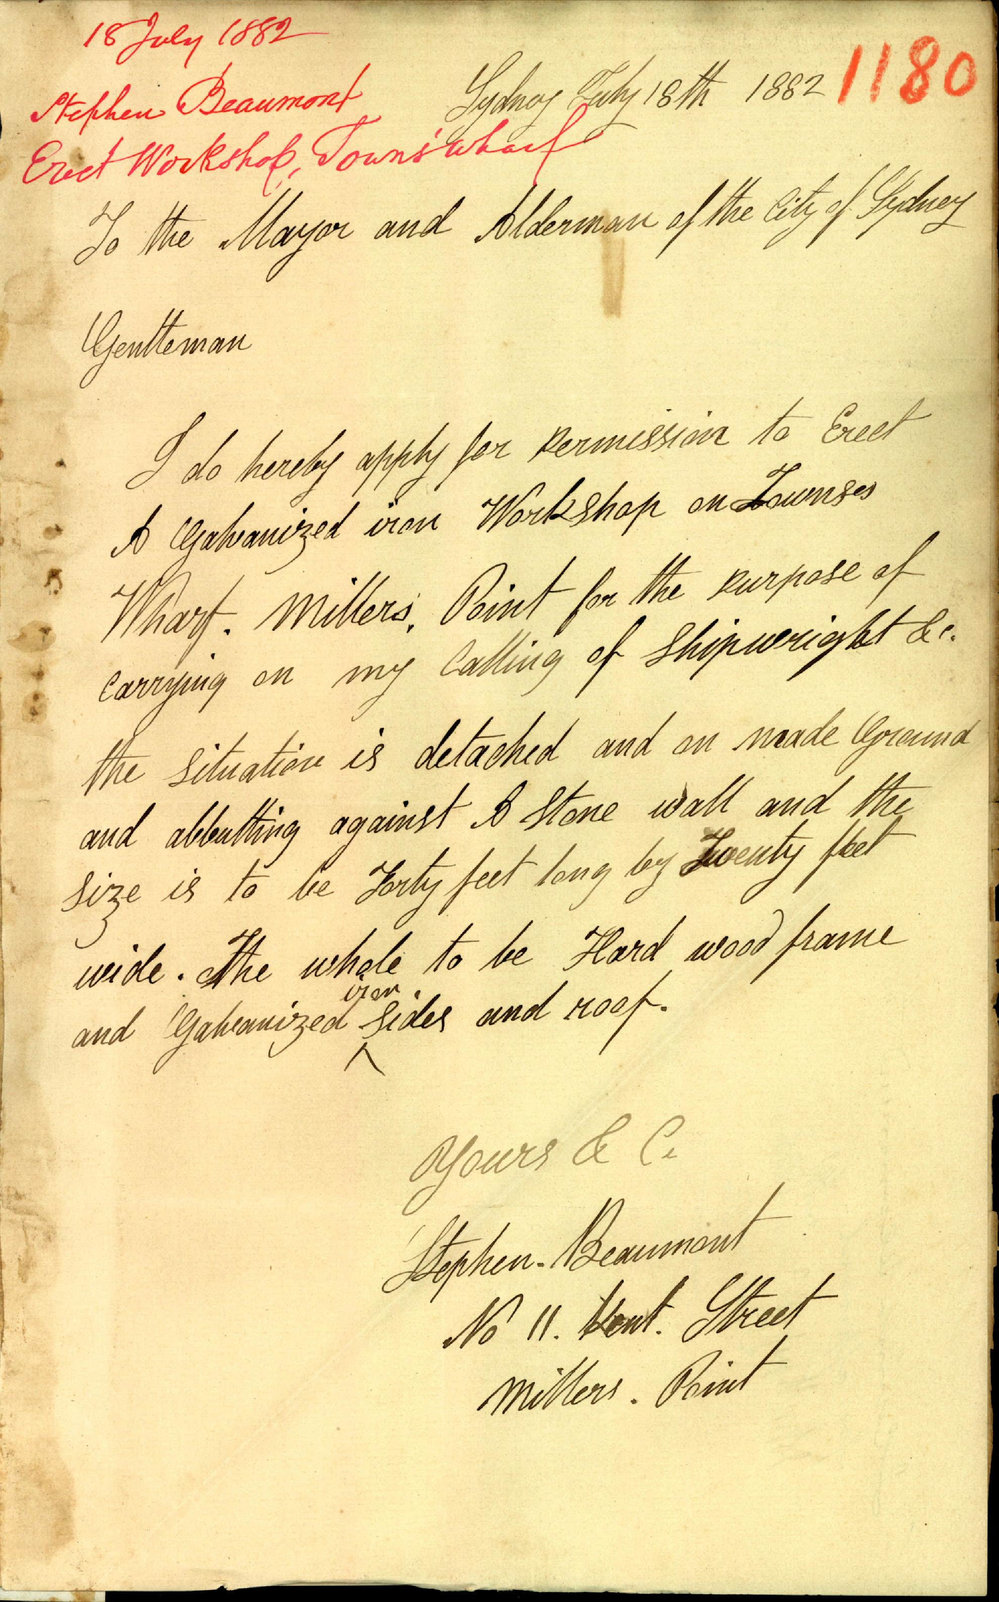 18 July 1882
Stephen Beaumont
Erect Workshop, Towns' Wharf
1180
Sydney July 18th 1882
To the Mayor and Alderman of the City of Sydney
Gentleman
I do hereby apply for permission to Erect
A Galvanized iron Workshop on Townses
Wharf. Millers, Point for the purpose of
carrying on my Calling of Shipwright &c.
the situation is detached and on made Ground
and abbutting against A Stone wall and the
size is to be Forty feet long by Twenty feet
wide. The whole to be Hard wood frame
and Galvanized iron Sides and roof.
Yours & C.
Stephen. Beaumont
No 11. Kent. Street
Millers. Point